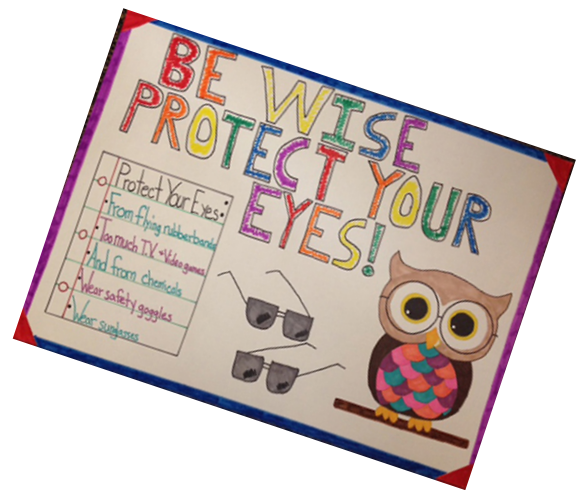 BE WISE
PROTECT YOUR
EYES!
Protect Your Eyes:
• From flying rubberbands
• Too much T.V. + Video games
• And from chemicals
• Wear safety goggles
• Wear sunglasses